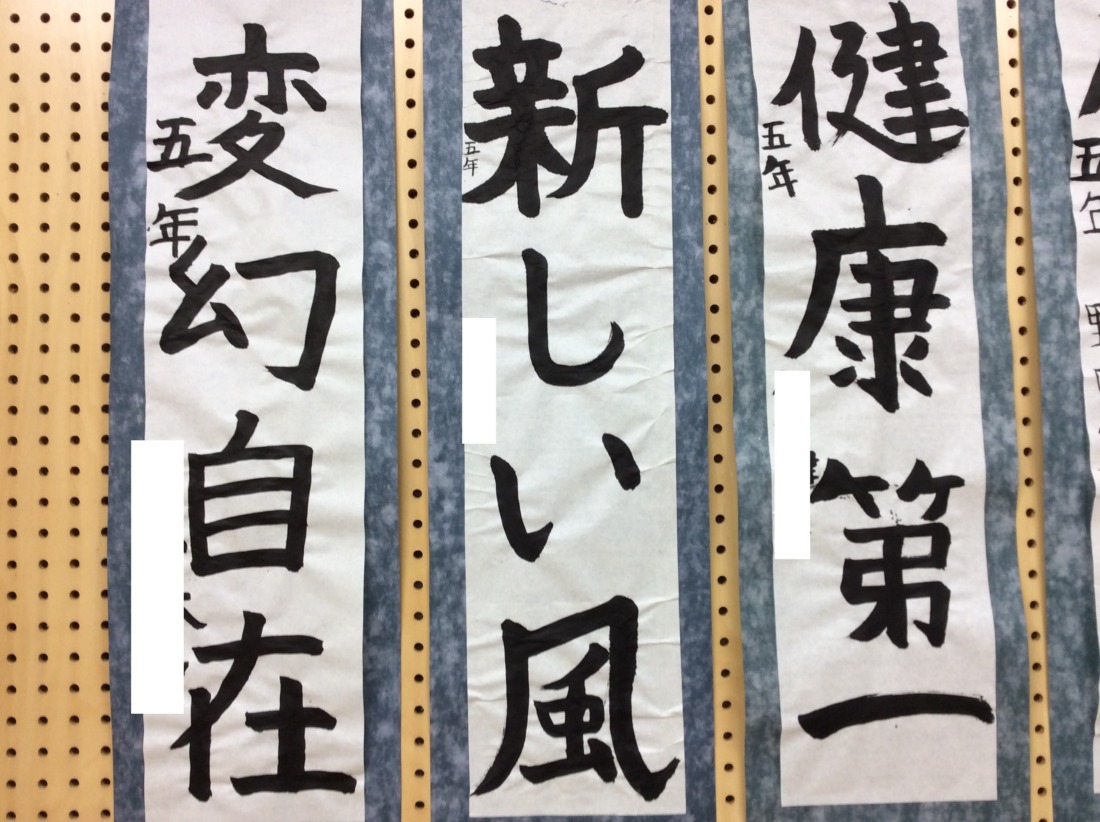 健康第一
五年
新しい風
五年
変幻自在
五年
五年